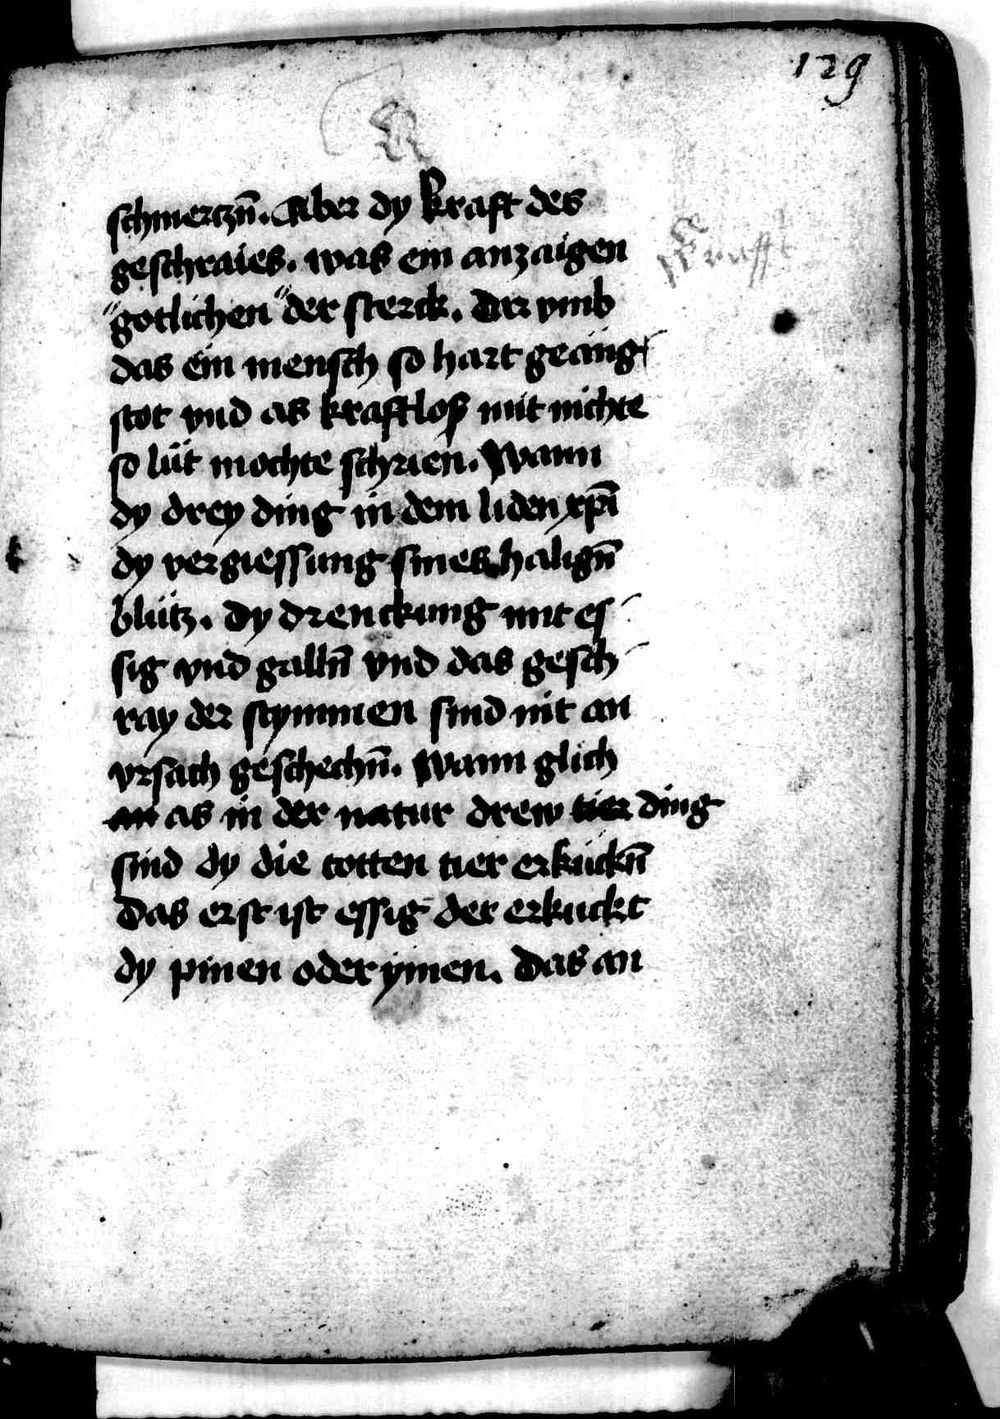 129
schmerczn̄. Aber dy kraft des
krafft
geschraies. was ein anzaigen
"gotlichen "der sterck. Dar vmb
das ein mensch so hart geäng-
stot vnd as kraftloß mit nichte
so lüt mochte schrien. Wann
dy drey ding in dem liden xp̄i
dy vergiessung sines halign̄
blütz. dy drenckung mit es-
sig vnd galln̄ vnd das gesch-
ray der stymmen sind nit an
vrsach geschechn̄. Wann glich
an as in der natur drew tier ding
sind dy die totten tier erkückn̄
Das erst ist essig der erkuckt
dy pinen oder ymen. Das an